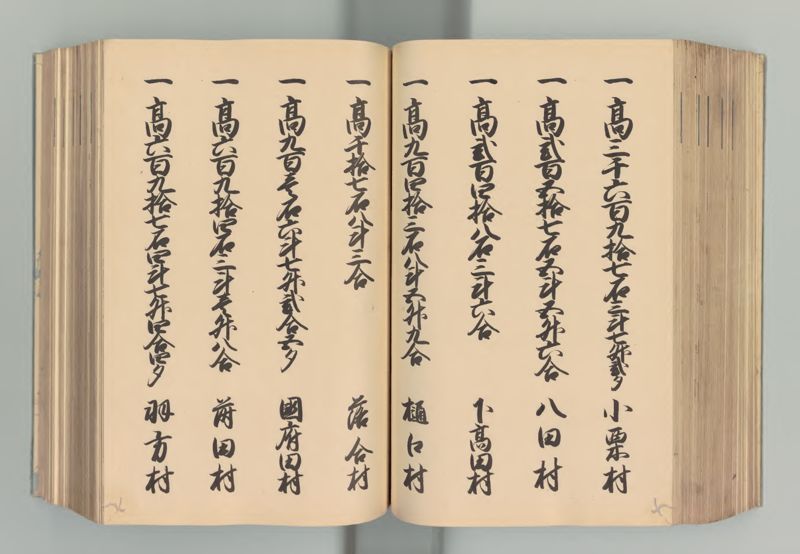 一高二千六百九拾七石三斗七升弐夕 小栗村
一高弐百五拾七石五斗五升六合 八田村
一高弐百四拾八石三斗六合 下高田村
一高九百四拾三石八斗五升九合 樋口村
一高千拾七石八斗三合 落合村
一高九百壱石六斗七升弐合五夕 國府田村
一高六百九拾四石三斗壱升八合 蒔田村
一高六百九拾七石四斗七升四合四夕 羽方村